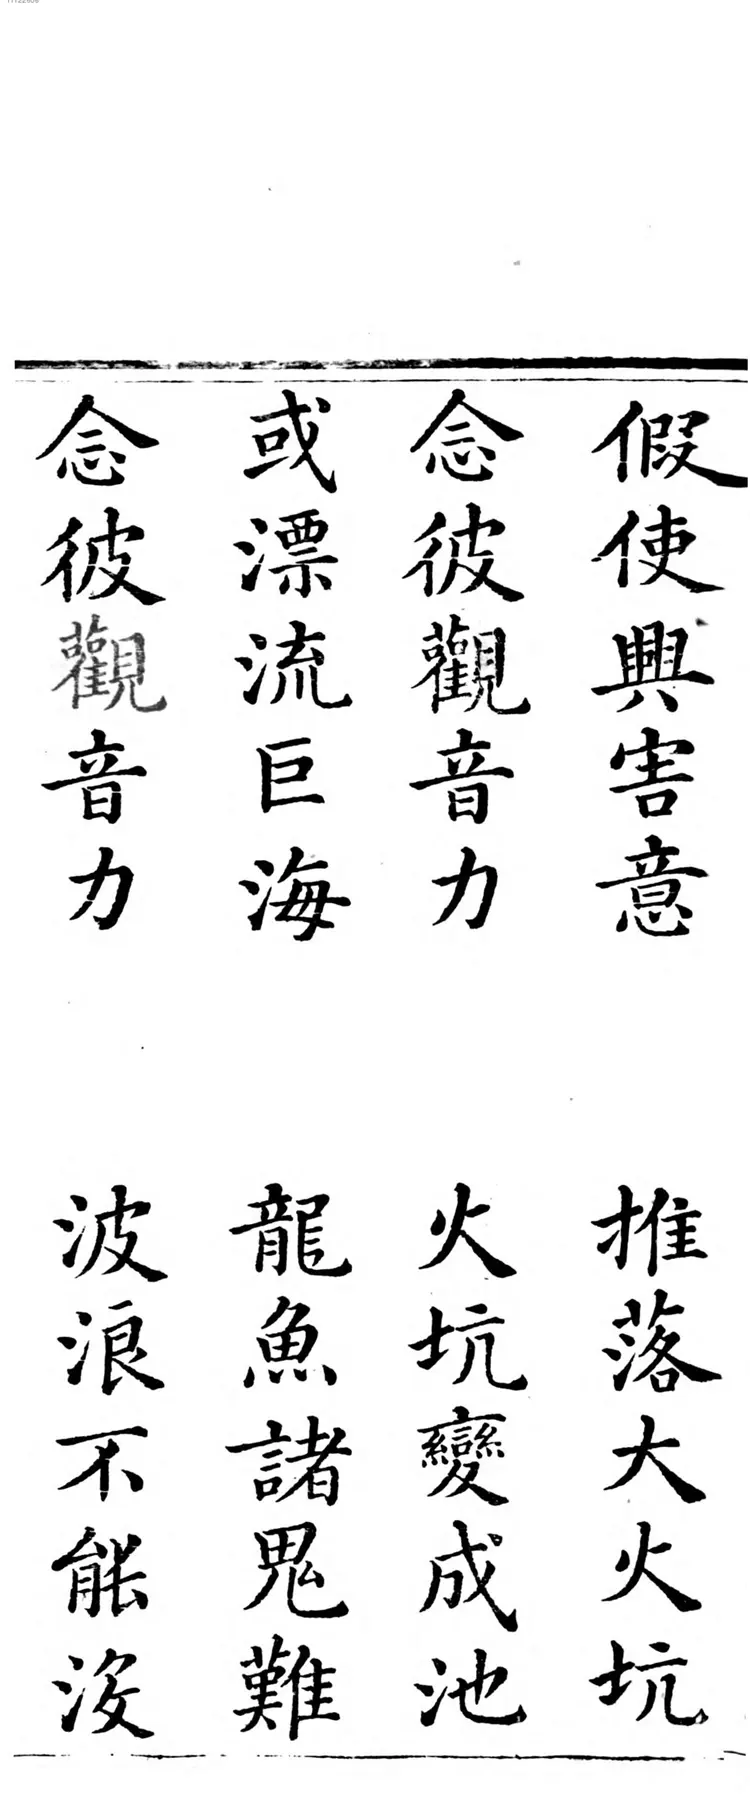 假使興害意　推落大火坑
念彼觀音力　火坑變成池
或漂流巨海　龍魚諸鬼難
念彼觀音力　波浪不能沒